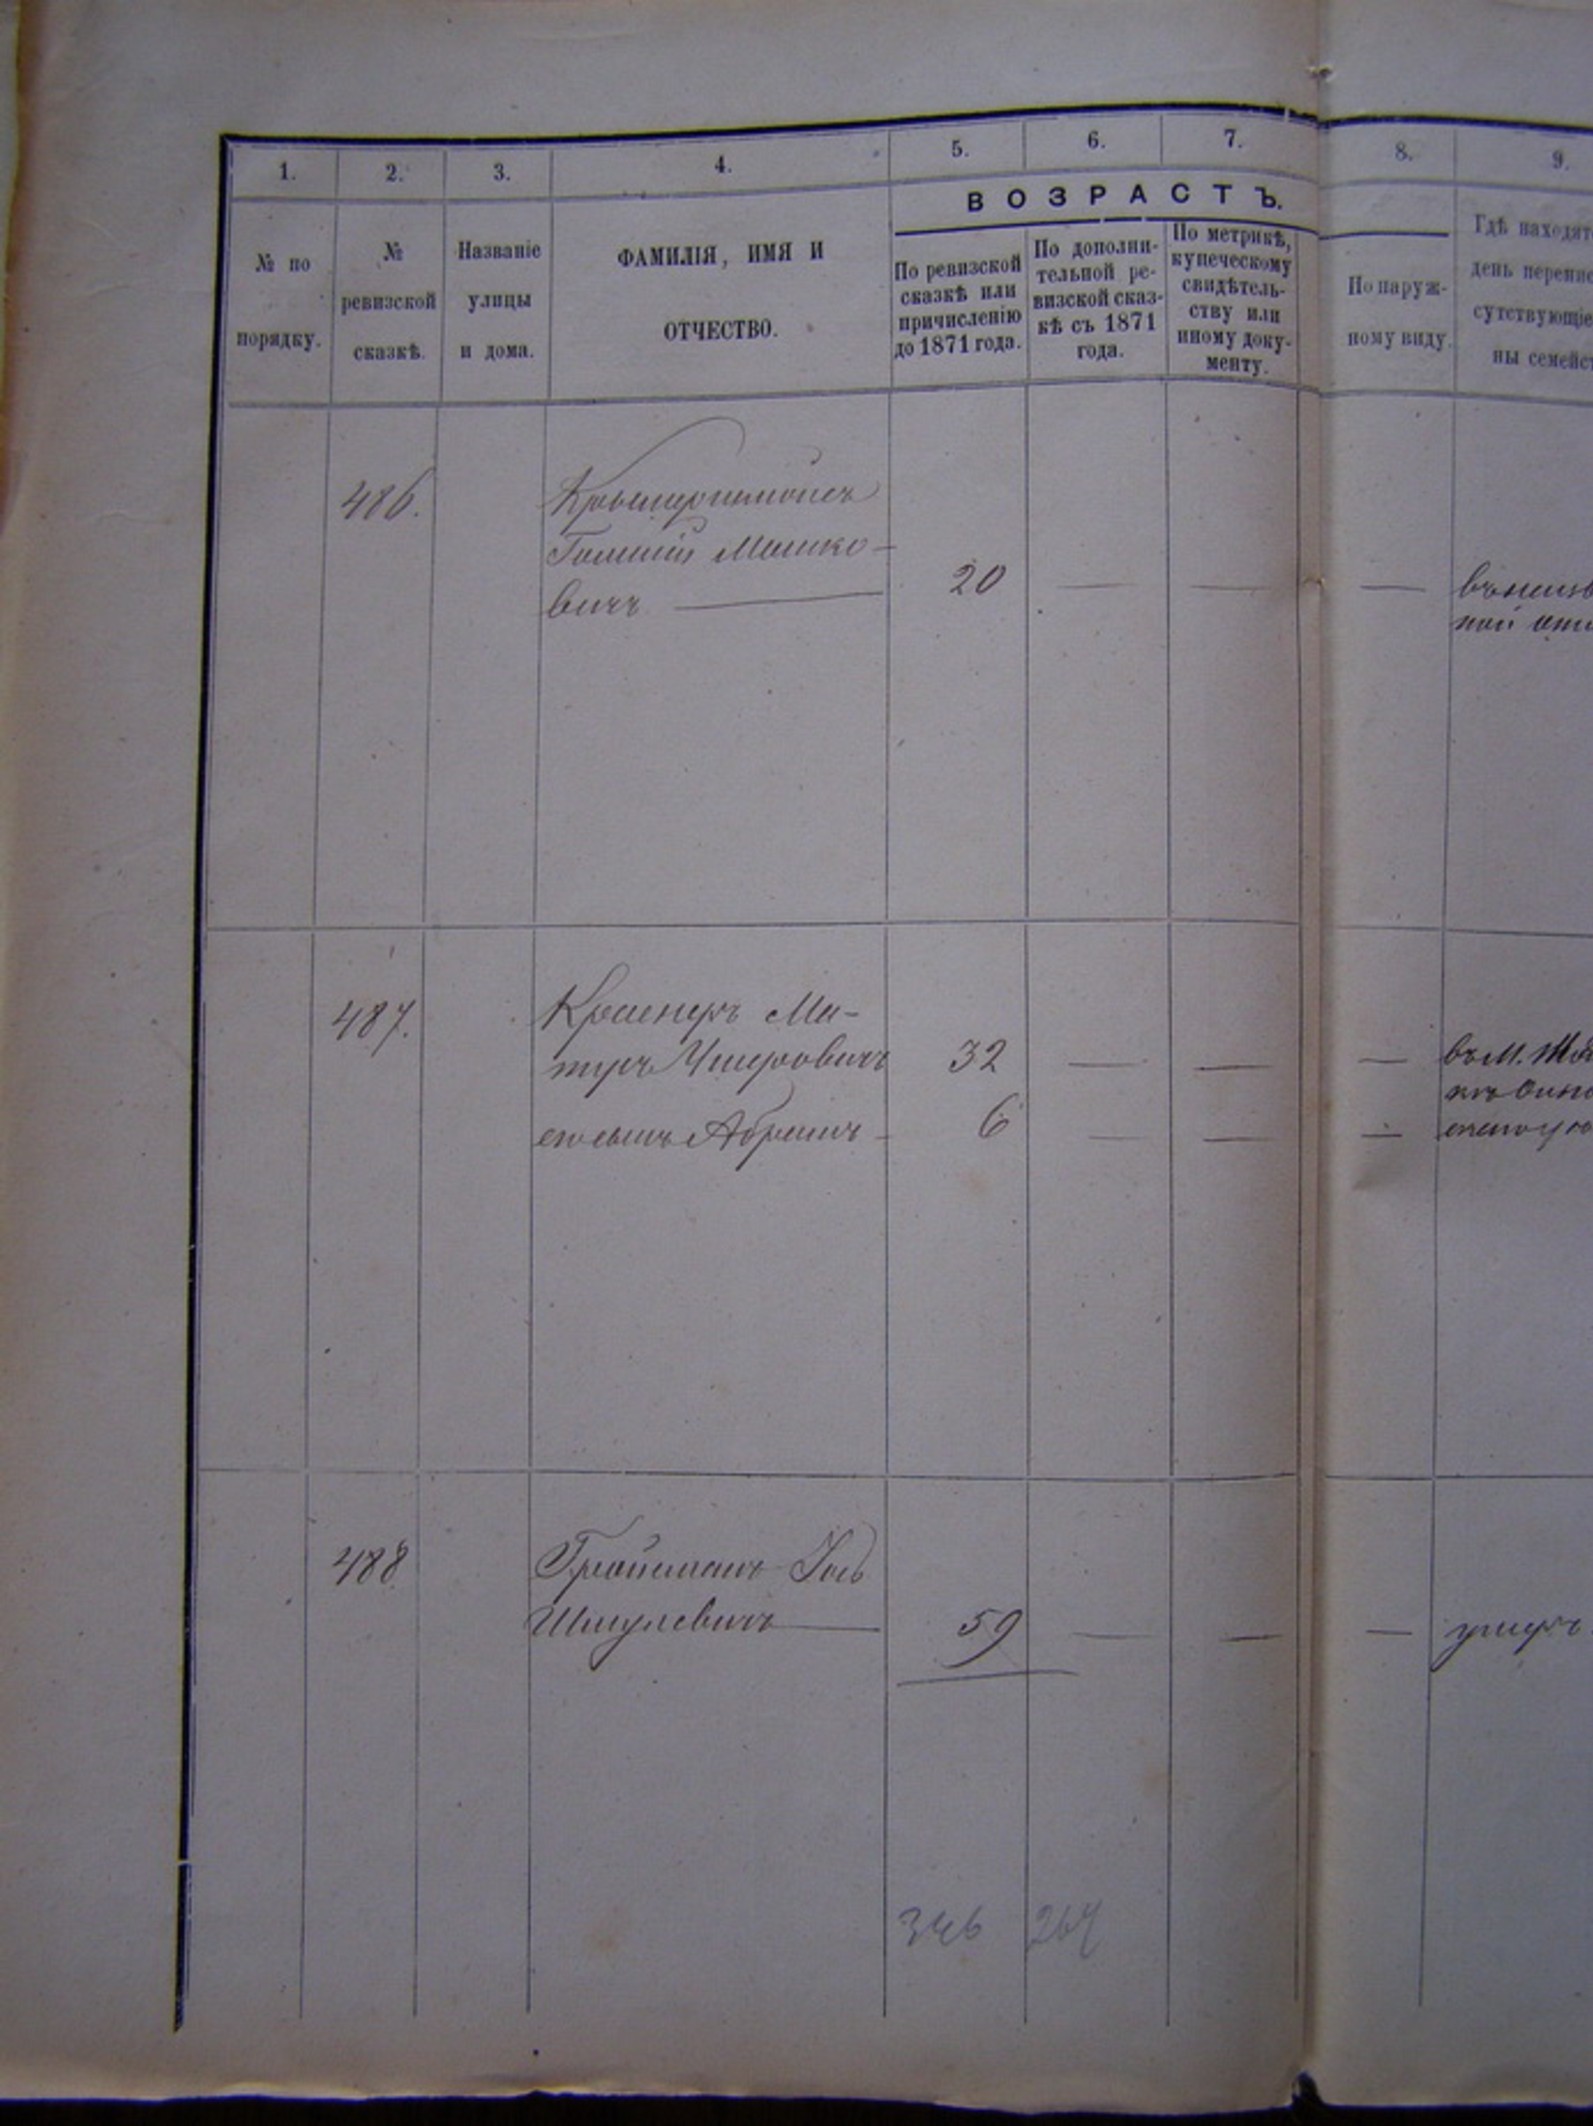 1. 2. 3. 4. 5. 6. 7. 8. 9.
ВОЗРАСТЪ.
№ по
порядку.
№
ревизской
сказкѣ.
Названіе
улицы
и дома.
ФАМИЛІЯ, ИМЯ И
ОТЧЕСТВО.
По ревизской
сказкѣ или
причисленію
до 1871 года.
По дополни-
тельной ре-
визской сказ-
кѣ съ 1871
года.
По метрикѣ,
купеческому
свидѣтель-
ству или
иному доку-
менту.
По наруж-
ному виду.
Гдѣ находят
день перепис
сутствующіе
ны семейс
486.
Мошко-
вичъ — 20 — — —
487.
Краснеръ Ме-
32 — — — въ м.
его сынъ Абрамъ — 6 — — —
488
Гройсманъ
Шмулевичъ — 59 — — — умеръ
346 264